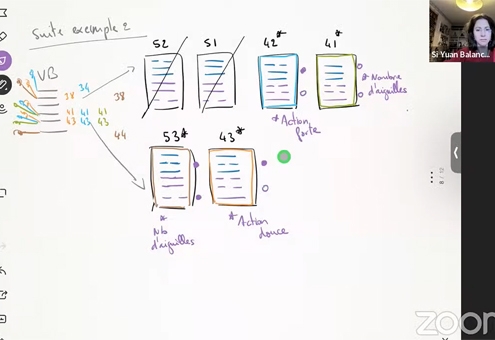 Suite exemple 2
52 51 42* 41*
VB
34
38 38
41 41 41
43 43 43
44
* Nombre d'aiguilles
* Action forte
53* 43*
* Nb d'aiguilles
* Action douce
Si Yuan Balanc...
8 / 12
zoom